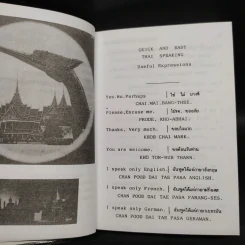 QUICK AND EASY
THAI SPEAKING
Useful Expressions
Yes.No.Perhaps ใช่ ไม่ บางที
CHAI.MAI.BANG-THEE.
Please.Excuse me. โปรด, ขออภัย
PRODE, KHO-ABHAI.
Thanks, Very much. ขอบใจมาก
KHOB CHAI MARK.
You are welcome.
KHO TON-RUB THARN.
I speak only English. ฉันพูดได้แต่ภาษาอังกฤษ
CHAN POOD DAI TAE PASA ANGLISH.
I speak only French. ฉันพูดได้แต่ภาษาฝรั่งเศส
CHAN POOD DAI TAE PASA FARANG-SES.
I speak only German. ฉันพูดได้แต่ภาษาเยอรมัน
CHAN POOD DAI TAE PASA GERAMAN.